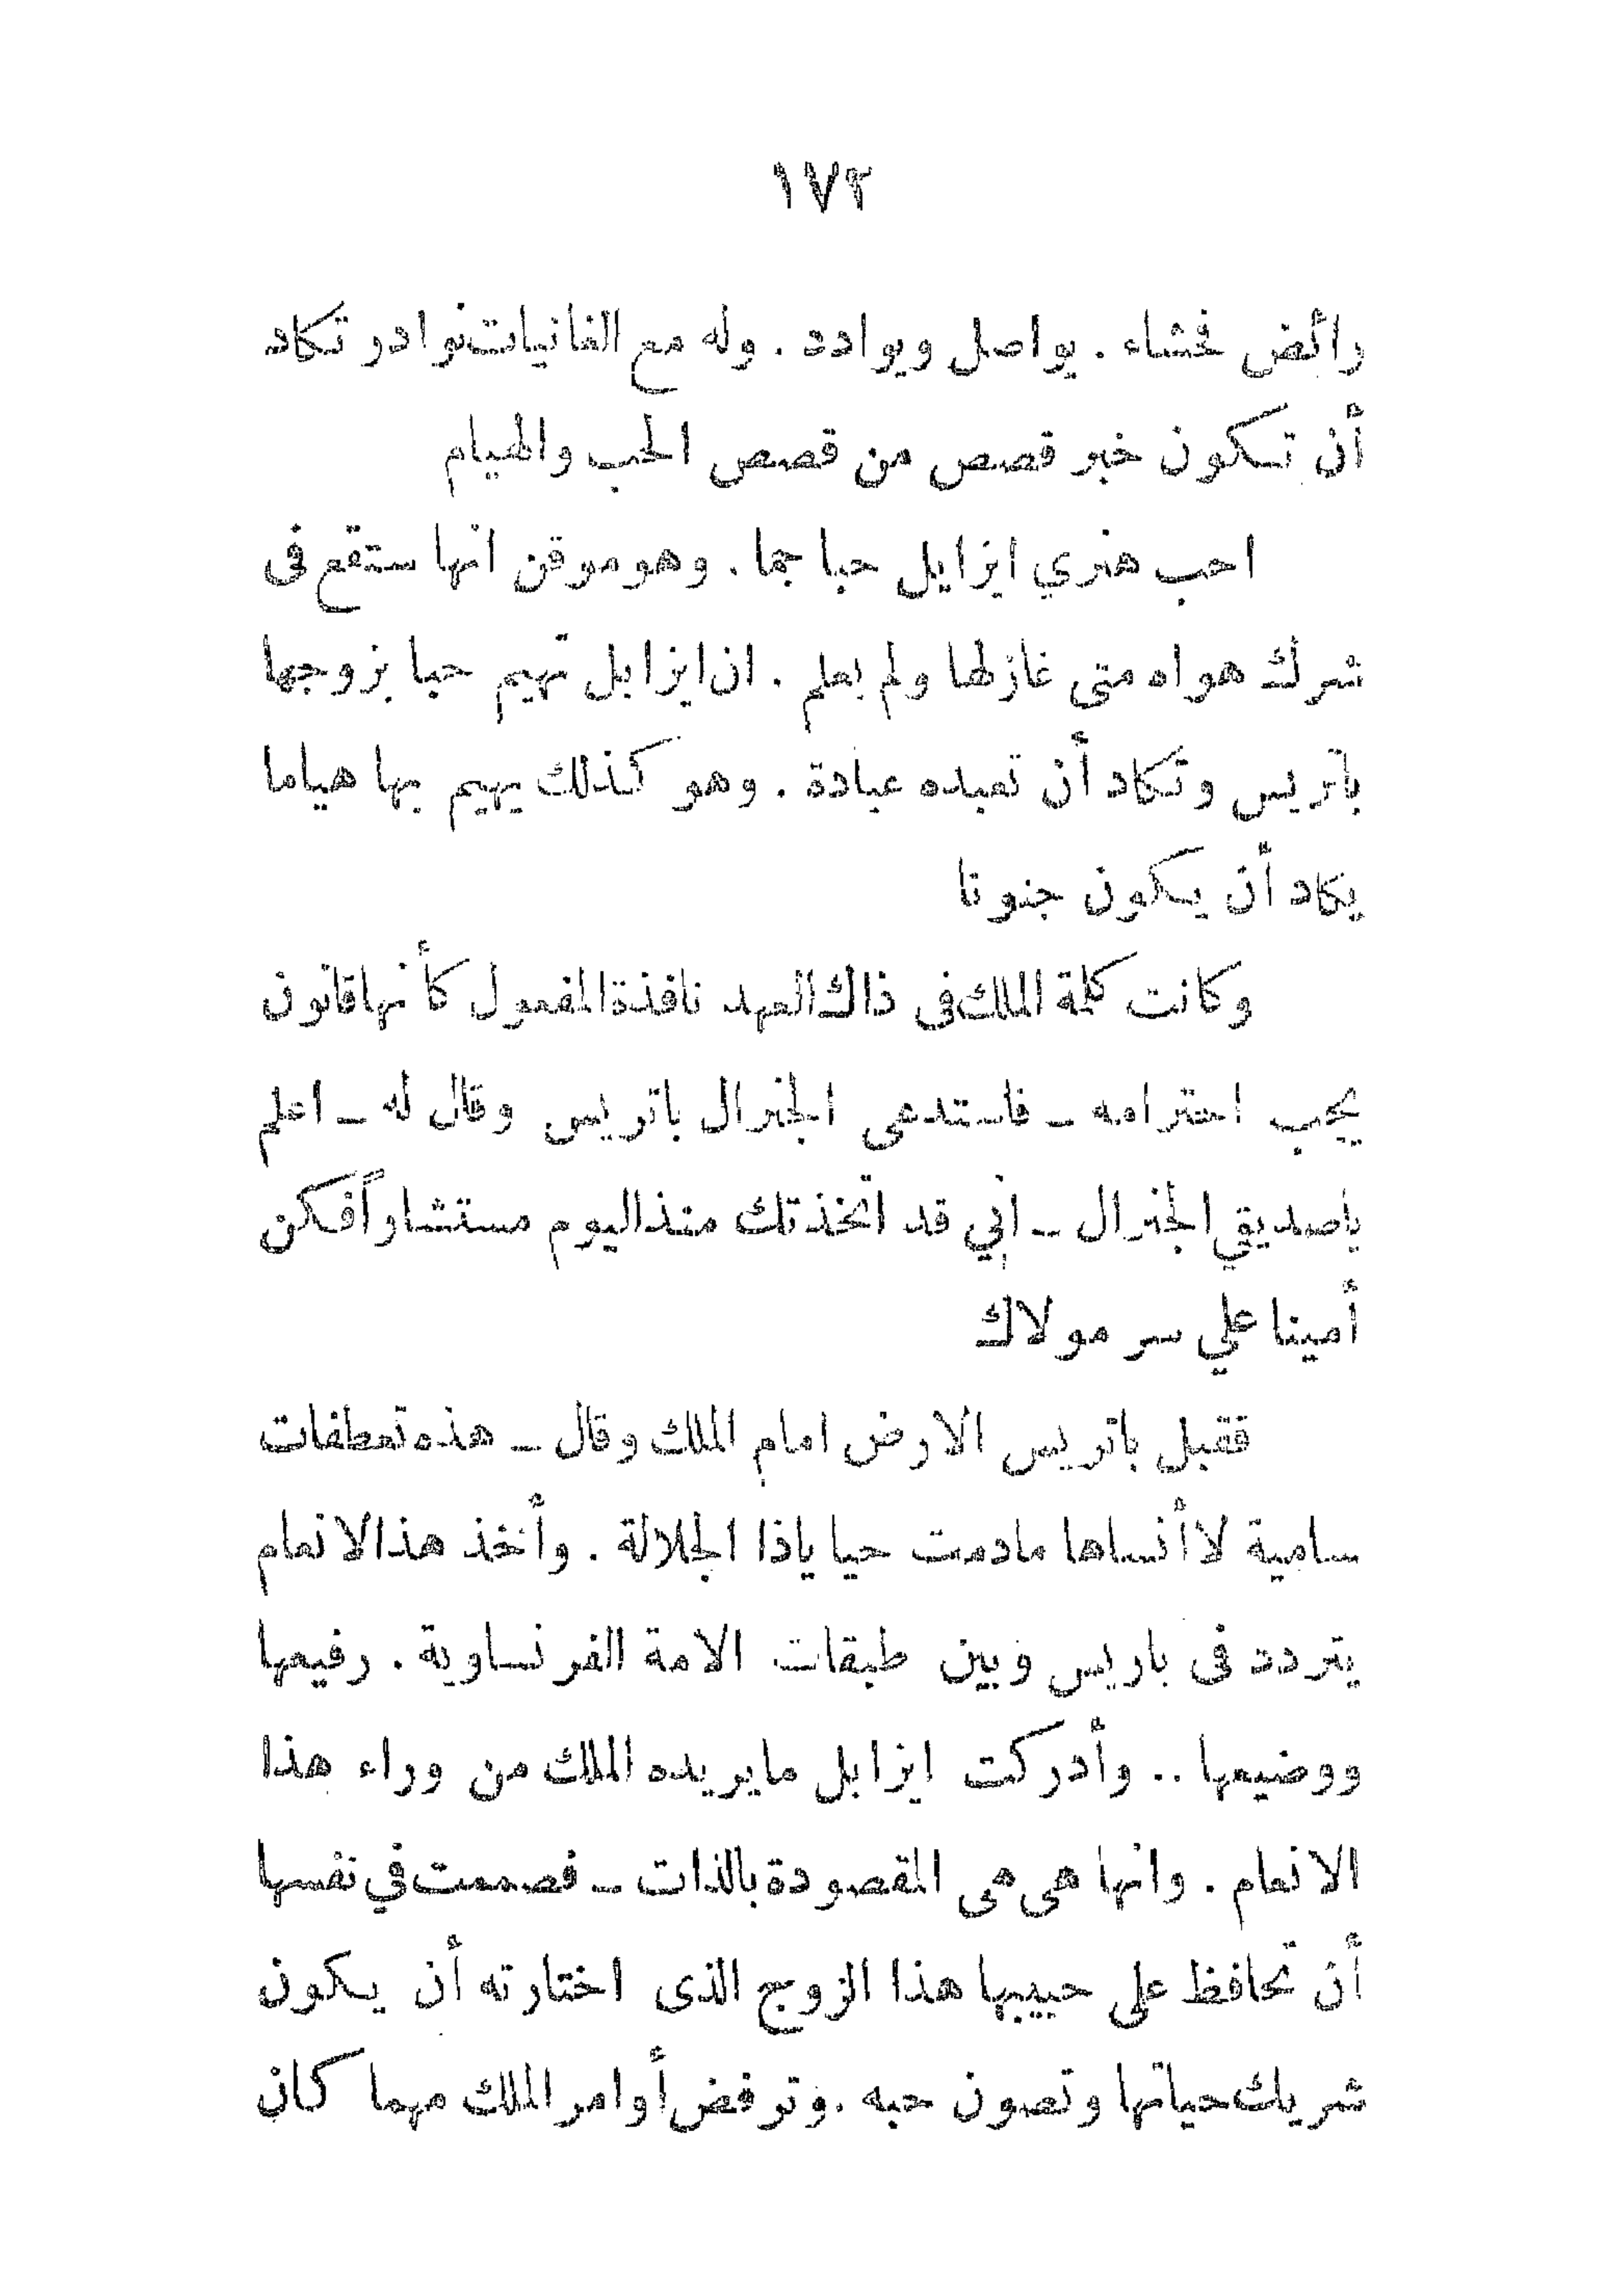 ١٧٢
رائض فحشاء . يواصل ويوادد . وله مع الغانيات نوادر تكاد
أن تكون خير قصص من قصص الحب والهيام
احب هنري ايزابل حبا جما . وهو موقن انها ستقع فى
شرك هواه متى غازلها ولم يعلم . ان ايزابل تهيم حبا بزوجها
باتريس وتكاد أن تعبده عبادة . وهو كذلك يهيم بها هياما
يكاد أن يكون جنونا
وكانت كلمة الملك فى ذاك العهد نافذة المفعول كأنها قانون
يجب احترامه ــ فاستدعى الجنرال باتريس وقال له ــ اعلم
ياصديقي الجنرال ــ انّي قد اتخذتك منذ اليوم مستشاراً فكن
أمينا علي سر مولاك
فقبل باتريس الارض امام الملك وقال ــ هذه تعطفات
سامية لا أنساها مادمت حيا ياذا الجلالة . وأخذ هذا الانعام
يتردد فى باريس وبين طبقات الامة الفرنساوية . رفيعها
ووضيعها .. وأدركت ايزابل مايريده الملك من وراء هذا
الانعام . وانها هى هى المقصودة بالذات ــ فصممت في نفسها
أن تحافظ على حبيبها هذا الزوج الذى اختارته أن يكون
شريك حياتها وتصون حبه . وترفض أوامر الملك مهما كان